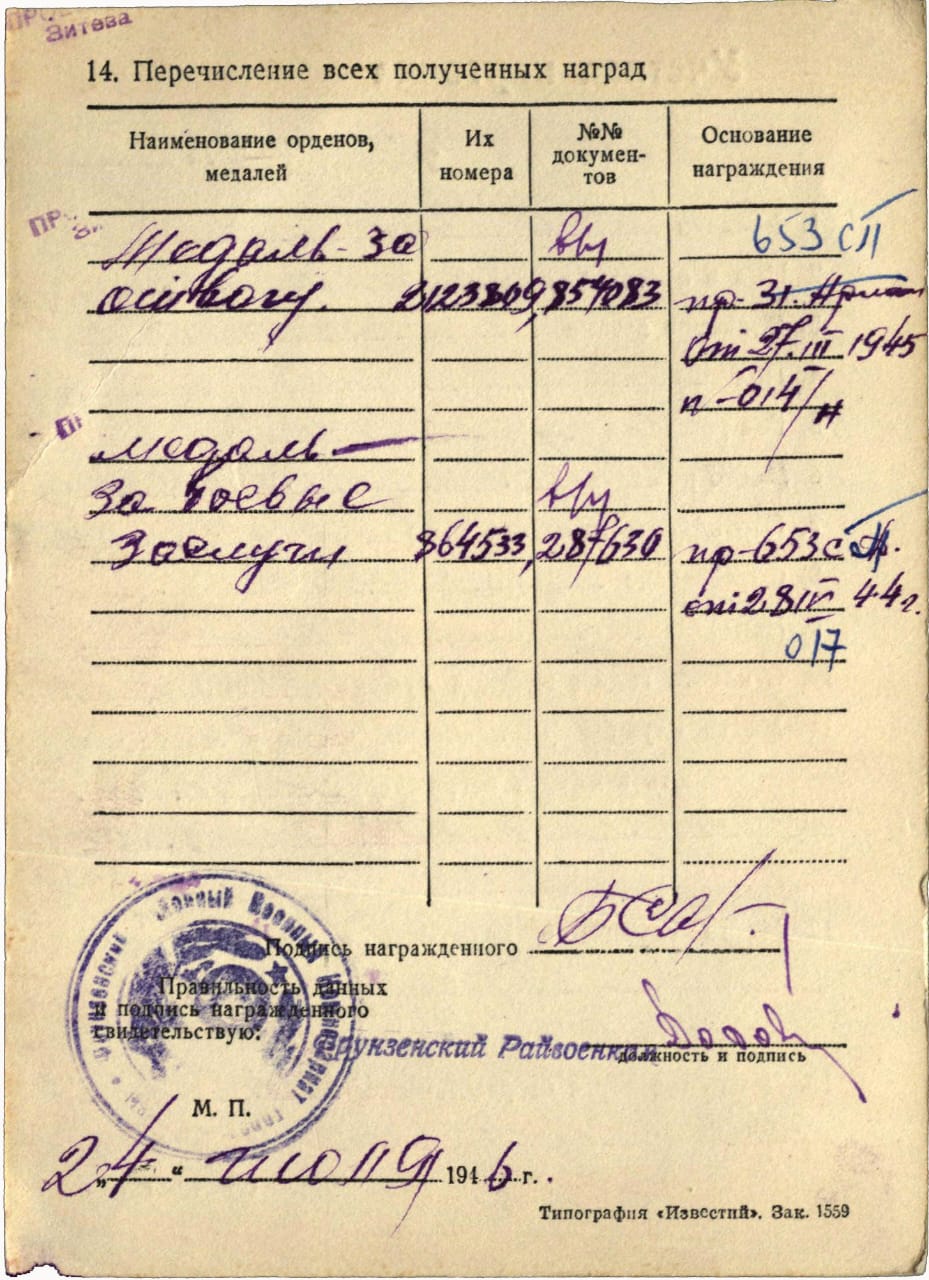 Зитева
14. Перечисление всех полученных наград
Наименование орденов, медалей
Их номера
№№ докумен-тов
Основание награждения
653 СП
Медаль - За
отвагу. 2123809, 854083 пр- 31. Армии
от 27. III 1945
п-014/н
медаль —
За боевые
Заслуги 364533, 287630 пр-653 с П.
от 28 IV 44 г.
017
Подпись награжденного
Правильность данных
и подпись награжденного
свидетельствую:
Фрунзенский Райвоенком
должность и подпись
М. П.
„24“ июня 1946 г.
Типография «Известий». Зак. 1559